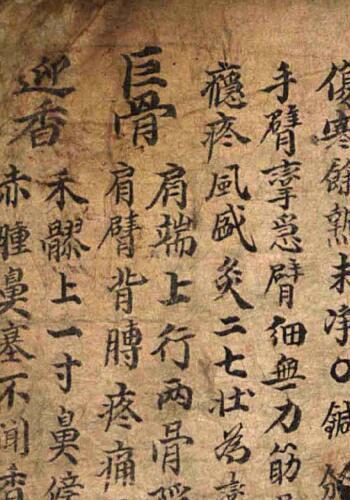 傷寒餘熱未净〇鍼
手臂急臂細無力筋
癮疹風盛灸二七壮為
巨骨
肩端上行兩骨
肩臂背膊疼痛
迎香
禾髎上一寸鼻傍
赤腫鼻塞不聞香